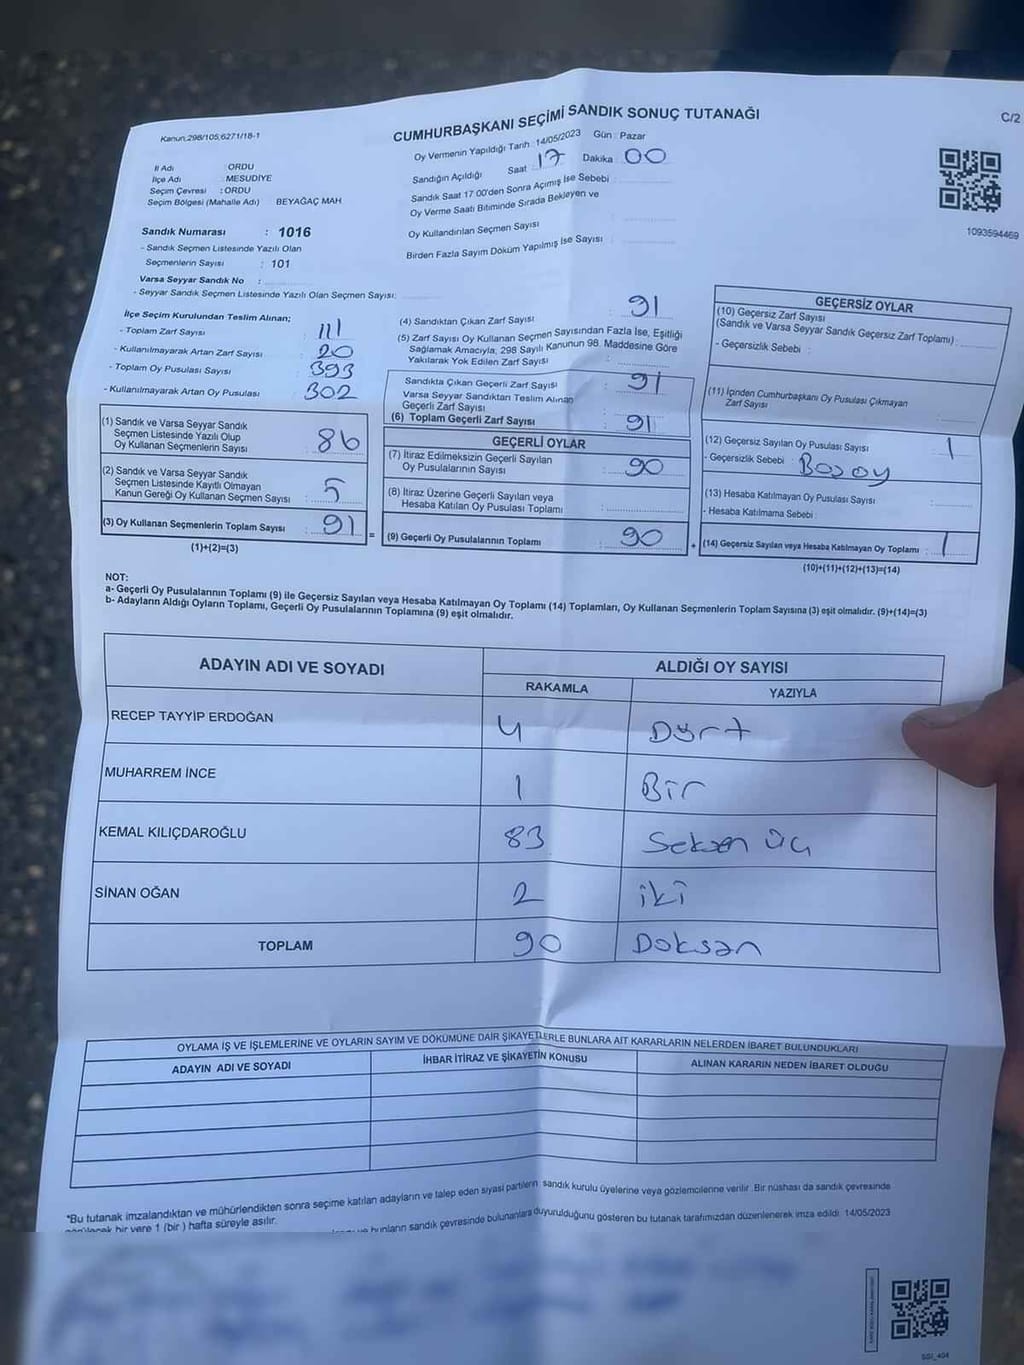 Kanun:298/105,6271/18-1
CUMHURBAŞKANI SEÇİMİ SANDIK SONUÇ TUTANAĞI
C/2
Oy Vermenin Yapıldığı Tarih :14/05/2023 Gün : Pazar
Sandığın Açıldığı Saat : 17 Dakika : 00
Sandık Saat 17:00'den Sonra Açılmış İse Sebebi :
Oy Verme Saati Bitiminde Sırada Bekleyen ve
Oy Kullandırılan Seçmen Sayısı :
Birden Fazla Sayım Döküm Yapılmış İse Sayısı :
1093594469
İl Adı : ORDU
İlçe Adı : MESUDİYE
Seçim Çevresi : ORDU
Seçim Bölgesi (Mahalle Adı) BEYAĞAÇ MAH.
Sandık Numarası : 1016
- Sandık Seçmen Listesinde Yazılı Olan
Seçmenlerin Sayısı : 101
Varsa Seyyar Sandık No :
- Seyyar Sandık Seçmen Listesinde Yazılı Olan Seçmen Sayısı:
İlçe Seçim Kurulundan Teslim Alınan;
- Toplam Zarf Sayısı : 111
- Kullanılmayarak Artan Zarf Sayısı : 20
- Toplam Oy Pusulası Sayısı : 393
- Kullanılmayarak Artan Oy Pusulası : 302
(1) Sandık ve Varsa Seyyar Sandık
Seçmen Listesinde Yazılı Olup
Oy Kullanan Seçmenlerin Sayısı : 86
(2) Sandık ve Varsa Seyyar Sandık
Seçmen Listesinde Kayıtlı Olmayan
Kanun Gereği Oy Kullanan Seçmen Sayısı : 5
(3) Oy Kullanan Seçmenlerin Toplam Sayısı : 91
(1)+(2)=(3)
=
(4) Sandıktan Çıkan Zarf Sayısı : 91
(5) Zarf Sayısı Oy Kullanan Seçmen Sayısından Fazla İse, Eşitliği
Sağlamak Amacıyla, 298 Sayılı Kanunun 98. Maddesine Göre
Yakılarak Yok Edilen Zarf Sayısı :
Sandıkta Çıkan Geçerli Zarf Sayısı : 91
Varsa Seyyar Sandıktan Teslim Alınan
Geçerli Zarf Sayısı :
(6) Toplam Geçerli Zarf Sayısı : 91
GEÇERLİ OYLAR
(7) İtiraz Edilmeksizin Geçerli Sayılan
Oy Pusulalarının Sayısı : 90
(8) İtiraz Üzerine Geçerli Sayılan veya
Hesaba Katılan Oy Pusulası Toplamı :
(9) Geçerli Oy Pusulalarının Toplamı : 90
+
GEÇERSİZ OYLAR
(10) Geçersiz Zarf Sayısı
(Sandık ve Varsa Seyyar Sandık Geçersiz Zarf Toplamı) :
- Geçersizlik Sebebi :
(11) İçinden Cumhurbaşkanı Oy Pusulası Çıkmayan
Zarf Sayısı :
(12) Geçersiz Sayılan Oy Pusulası Sayısı : 1
- Geçersizlik Sebebi : Boş oy
(13) Hesaba Katılmayan Oy Pusulası Sayısı :
- Hesaba Katılmama Sebebi :
(14) Geçersiz Sayılan veya Hesaba Katılmayan Oy Toplamı : 1
(10)+(11)+(12)+(13)=(14)
NOT:
a- Geçerli Oy Pusulalarının Toplamı (9) ile Geçersiz Sayılan veya Hesaba Katılmayan Oy Toplamı (14) Toplamları, Oy Kullanan Seçmenlerin Toplam Sayısına (3) eşit olmalıdır. (9)+(14)=(3)
b- Adayların Aldığı Oyların Toplamı, Geçerli Oy Pusulalarının Toplamına (9) eşit olmalıdır.
ADAYIN ADI VE SOYADI ALDIĞI OY SAYISI
RAKAMLA YAZIYLA
RECEP TAYYİP ERDOĞAN 4 Dört
MUHARREM İNCE 1 Bir
KEMAL KILIÇDAROĞLU 83 Seksen üç
SİNAN OĞAN 2 iki
TOPLAM 90 Doksan
OYLAMA İŞ VE İŞLEMLERİNE VE OYLARIN SAYIM VE DÖKÜMÜNE DAİR ŞİKAYETLERLE BUNLARA AİT KARARLARIN NELERDEN İBARET BULUNDUKLARI
ADAYIN ADI VE SOYADI İHBAR İTİRAZ VE ŞİKAYETİN KONUSU ALINAN KARARIN NEDEN İBARET OLDUĞU
*Bu tutanak imzalandıktan ve mühürlendikten sonra seçime katılan adayların ve talep eden siyasi partilerin sandık kurulu üyelerine veya gözlemcilerine verilir. Bir nüshası da sandık çevresinde
görülecek bir yere 1 (bir) hafta süreyle asılır.
ve bunların sandık çevresinde bulunanlara duyurulduğunu gösteren bu tutanak tarafımızdan düzenlenerek imza edildi. 14/05/2023